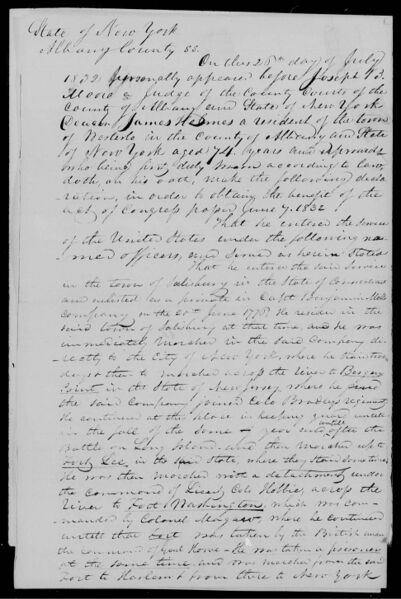 State of New York
Albany County ss.
On this 26th day of July
1832 personally appeared before Joseph
a Judge of the County Courts of the
County of Albany and State of New York
James Holmes a resident of the town
of Westerlo in the County of Albany and State
of New York aged 74 years and upwards
who being first duly sworn according to law
doth, on his oath, make the following decla
ration, in order to obtain the benefit of the
act of Congress passed June 7. 1832.
That he entered the service
of the United States under the following na
med officers, and served as herein stated
That he entered the said service
in the town of Salisbury in the State of Connecticut
and enlisted as a private in Capt Benjamin
Company on the 20th June 1776 He resided in the
said town of Salisbury at that time, and he was
immediately marched in the said Company di
rectly to the City of New York, where he
days & then to marched across the river to Bergen
Point in the State of New Jersey, where he
the said Company joined Colo Bradleys regiment
He continued at this place in keeping guard untill
in the fall of the same year untill after the
Battle on Long Island and then marched up to
Fort Lee, in the said State, where they staid sometime
He was then marched with a detachment under
the Command of Lieut Colo Hobbie, across the
River to Fort Washington, which was com
manded by Colonel Morgan, where he continued
untill that Fort was taken by the British under
the command of Genl Howe He was taken a prisoner
at the same time and was marched from the said
Fort to Harlem & from there to New York